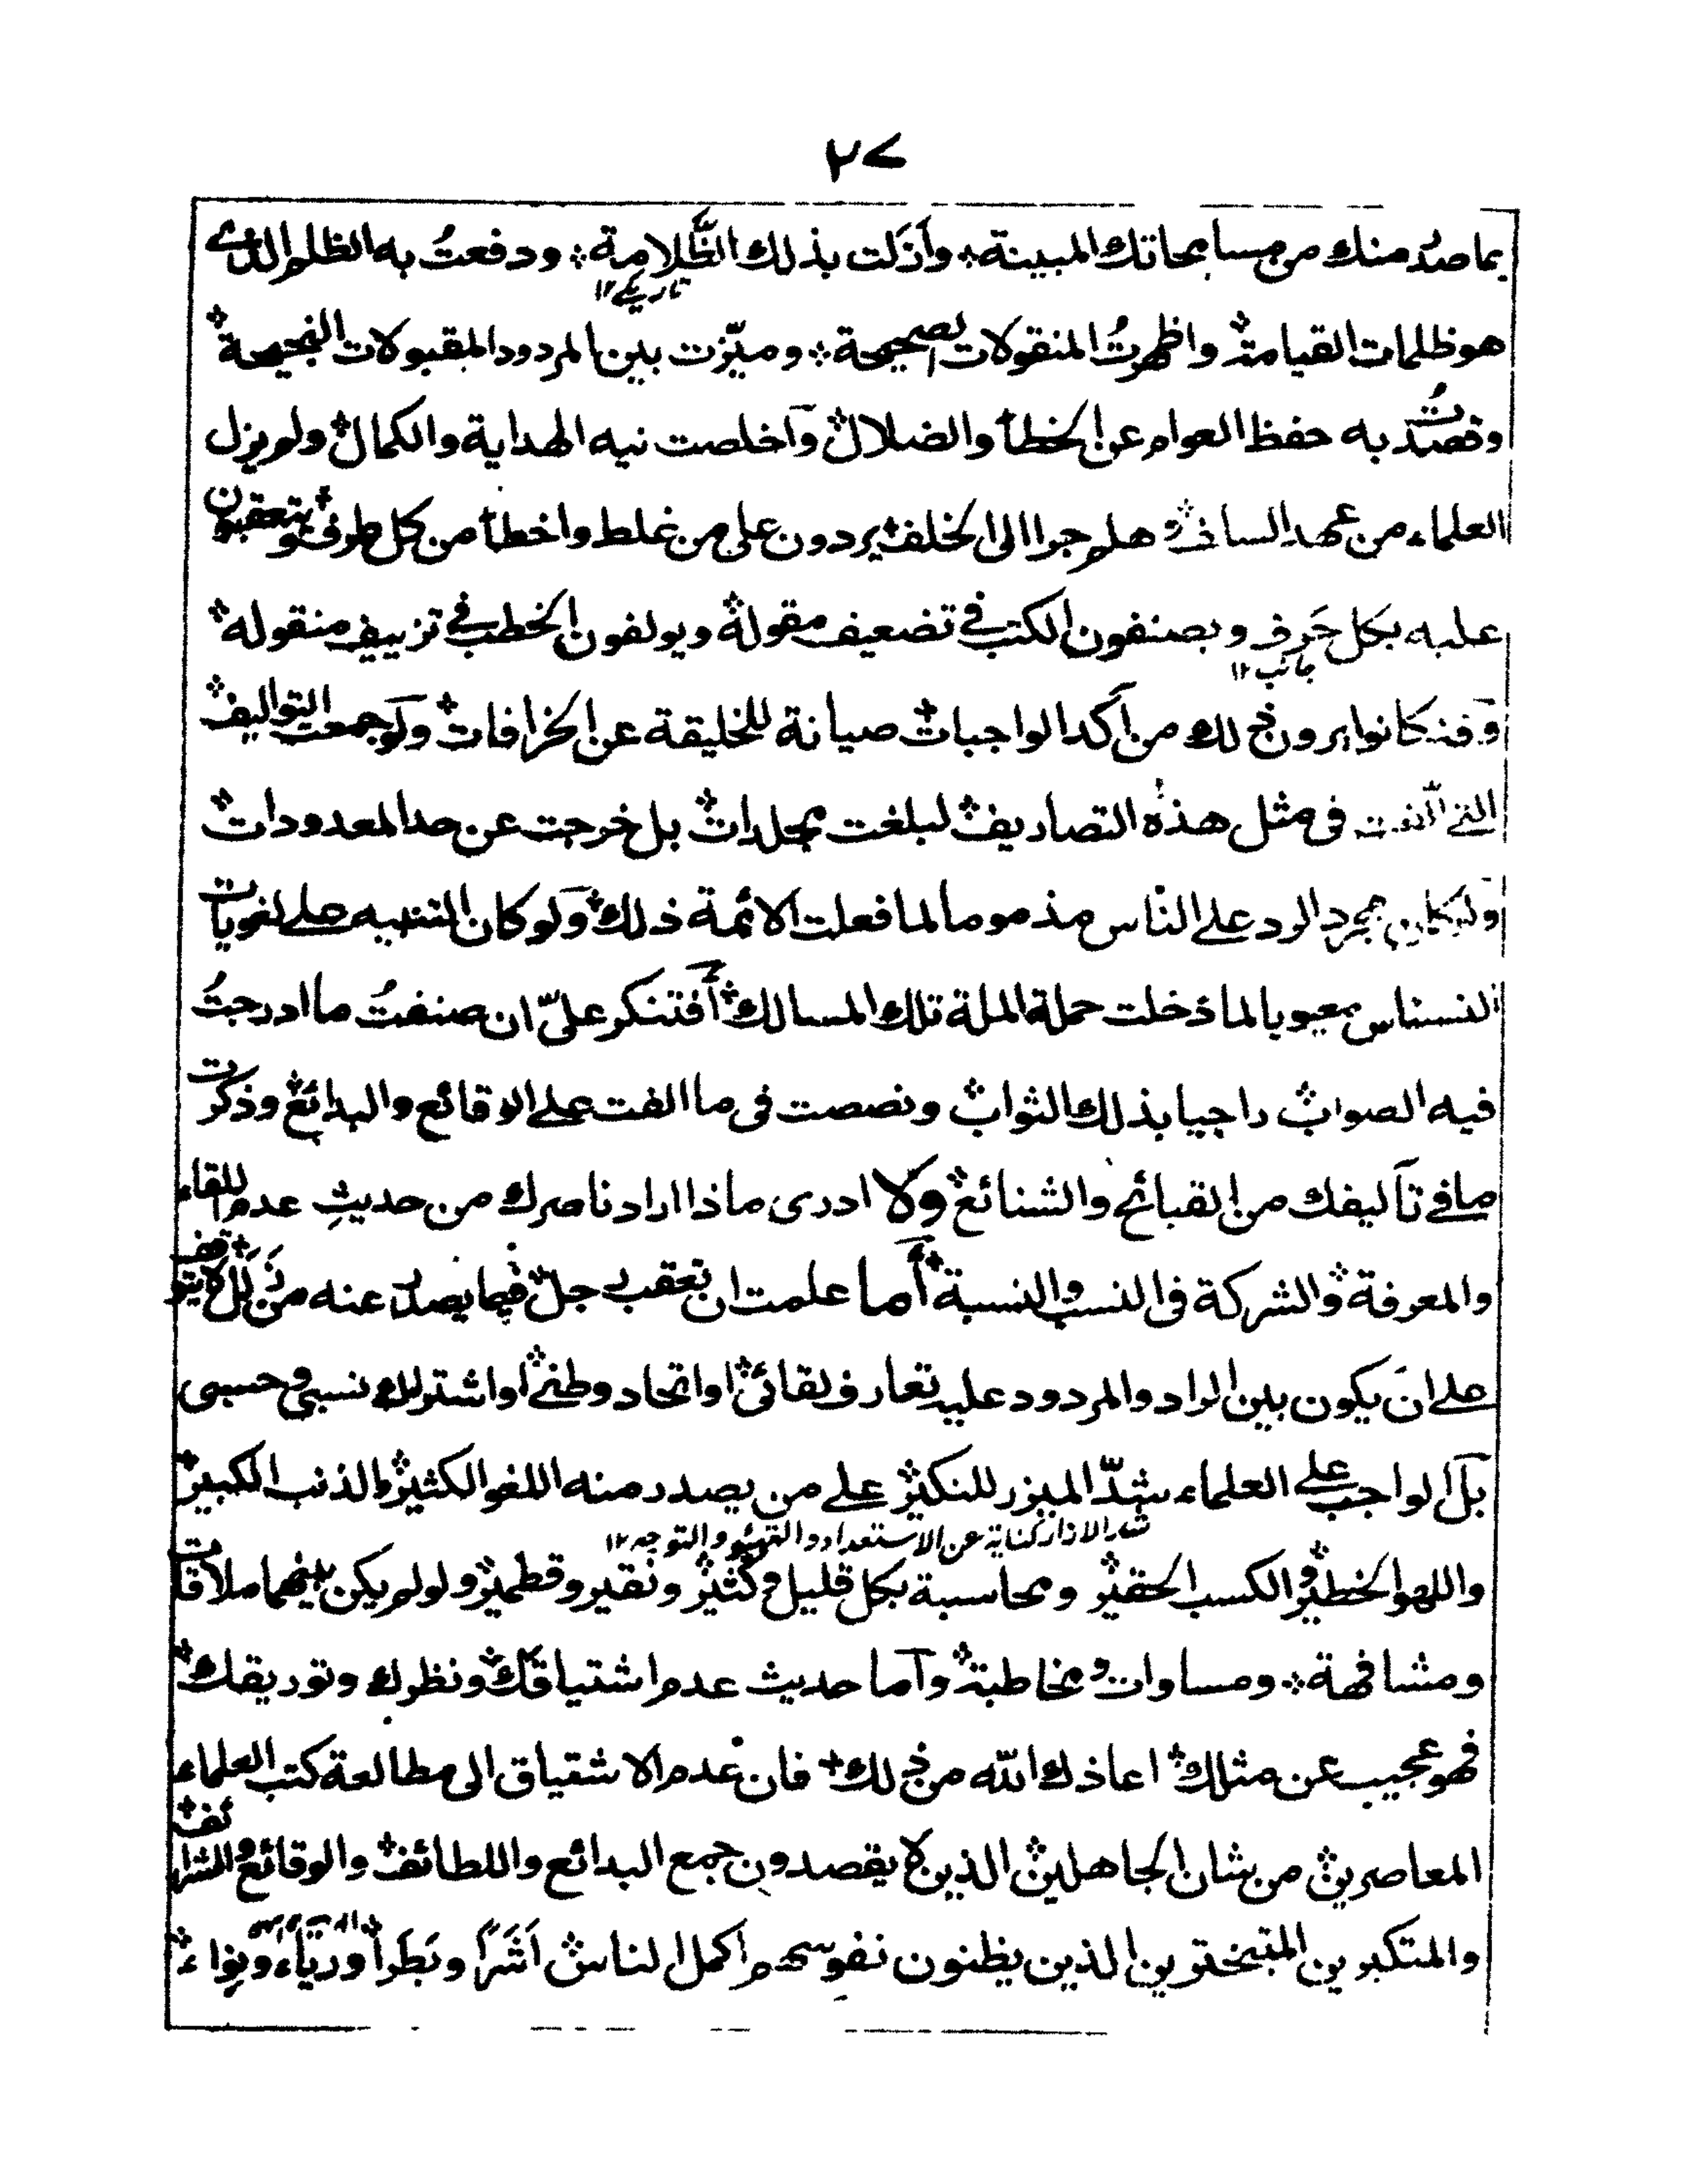 ٢٧
بما صدر منك من مسامحاتك المبينة ؞ وأزلت بذلك الظُّلامة ؞ ودفعتُ به الظلم الذے
تاریکے ١٢
هو ظلمات القيامة ؞ واظهرتُ المنقولات الصحيحة ؞ وميّزت بين المردود المقبولات النجيحة ؞
وقصدتُ به حفظ العوام عن الخطأ والضلال ؞ وأخلصت نيه الهداية والكمال ؞ ولم يزل
العلماء من عهد السلف ؞ وهلم جرا الى الخلف ؞ يردون على من غلط واخطأ من كل طرف ؞ ويتعقبون
عليه بكل حَرف ويصنفون الكتب في تضعيف مقولة ؞ ويولفون الخطب في تزييف منقوله ؞
جانب ١٢
وقد كانوا يرون ذلك من أكد الواجبات ؞ صيانة للخليقة عن الخرافات ؞ ولو جمعت التواليف ؞
التي الفت في مثل هذه التصاريف ؞ لبلغت مجلدات ؞ بل خرجت عن حد المعدودات ؞
ولو كان مجرد الرد على الناس مذموما لما فعلت الائمة ذلك ؞ ولو كان التنبيه على لغويات
النسناس معيوبا لما دخلت حملة الملة تلك المسالك ؞ أفتنكر عليّ ان صنفتُ ما ادرجتُ
فيه الصواب ؞ راجيا بذلك الثواب ؞ ونصصت فى ما الفت على الوقائع والبدائع ؞ وذكرت
ما في تآليفك من القبائح والشنائع ؞ ولا ادرى ماذا اراد ناصرك من حديث عدم اللقاء
والمعرفة ؞ والشركة في النسب والنسبة ؞ أما علمت ان تعقب رجل ؞ فيما يصدر عنه من زَلَل ؞ لا يتوقف
على ان يكون بين الراد والمردود عليه تعارف لقائي ؞ او اتحاد وطني ؞ او اشتراك نسبي وحسبى
بل الواجب على العلماء شدّ الميزر للنكير ؞ على من يصدر منه اللغو الكثير ؞ والذنب الكبير ؞
شد الازار كناية عن الاستعداد والتهيئو والتوجه ١٢
واللهو الخطير ؞ والكسب الحقير ؞ ومحاسبة بكل قليل وكثير ؞ ونقير وقطمير ؞ ولو لم يكن بينهما ملاقات
ومشافهة ؞ ومساوات ومخاطبة ؞ وأما حديث عدم اشتياقك ؞ ونظرك وتوريقك ؞
فهو عجيب عن مثلك ؞ اعاذك الله من ذلك ؞ فان عدم الاشتياق الى مطالعة كتب العلماء
المعاصرين ؞ من شان الجاهلين ؞ الذين لا يقصدون جمع البدائع واللطائف ؞ والوقائع والشرائف ؞
والمتكبرين المتبخترين الذين يظنون نفوسهم اكمل الناس ؞ اَشَراً وبَطَراً ورياءً ونِواء ؞